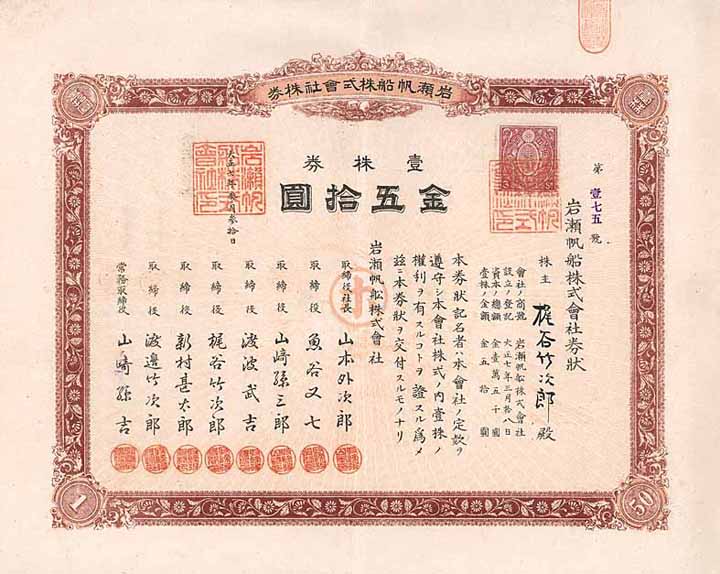 岩瀬帆船株式會社株券
壹株券
金五拾圓
第壹七五號
岩瀬帆船株式會社券狀
株主 梶谷竹次郎 殿
會社ノ商號 岩瀬帆船株式會社
設立ノ登記 大正七年三月拾八日
資本ノ總額 金壹萬五千圓
壹株ノ金額 金五拾圓
本券狀記名者ハ本會社ノ定款ヲ
遵守シ本會社株式ノ内壹株ノ
權利ヲ有スルコトヲ證スル爲メ
玆ニ本券狀ヲ交付スルモノナリ
岩瀬帆舩株式會社
取締役社長 山本外次郎
取締役 魚谷又七
取締役 山﨑孫三郎
取締役 渡波武吉
取締役 梶谷竹次郎
取締役 新村甚太郎
取締役 渡邊竹次郎
常務取締役 山﨑孫吉
大正七年參月參拾日
1
50